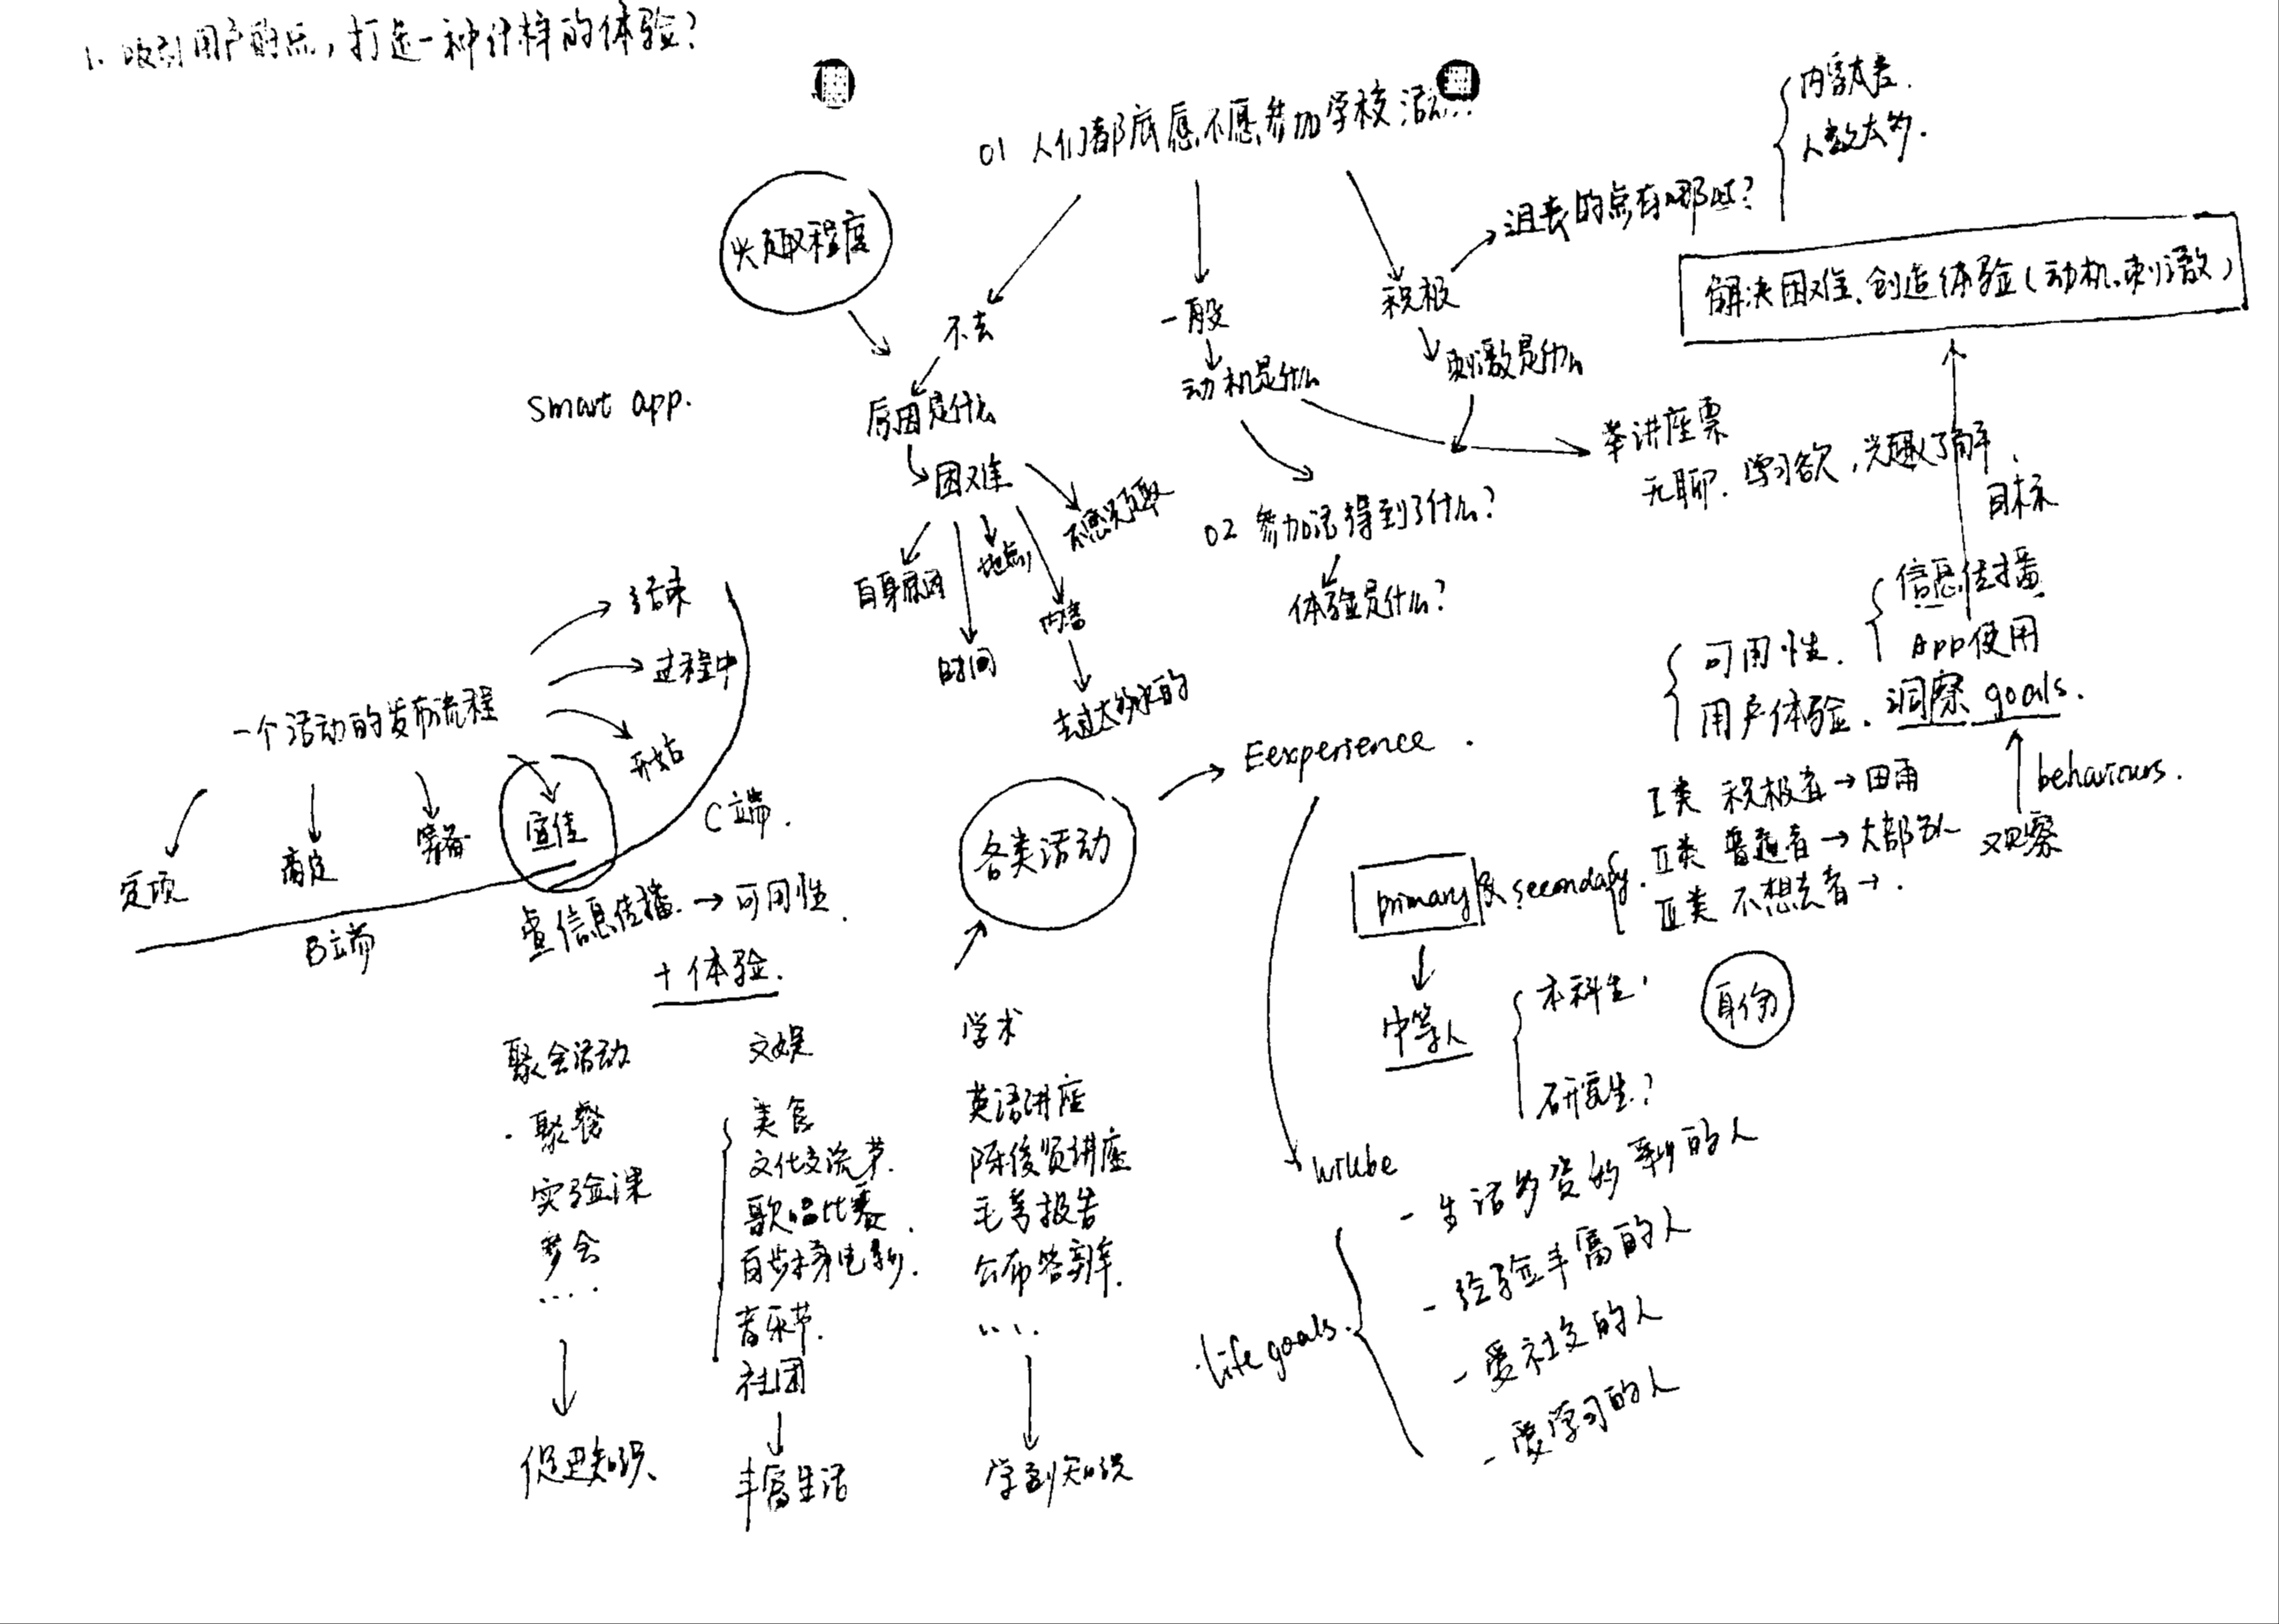 1. 吸引用户的点，打造一种什样的体验？
01 人们都底愿不愿参加学校活动...
内容太差.
人数太多.
兴趣程度
沮丧的点有哪些？
解决困难、创造体验（动机、刺激）
不去
一般
积极
smart app.
原因是什么
动机是什么
刺激是什么
困难
拿讲座票
无聊. 学习欲，兴趣了解.
目标
自身原因
时间
地点
内容
不感兴趣
02 参加活得到了什么？
体验是什么？
结束
过程中
开始
一个活动的发布流程
宣传
B端
C端.
信息传播 → 可用性.
+ 体验.
各类活动
Eexperience.
信息传播
App使用
可用性.
用户体验. 洞察 goals.
behaviours.
观察
I类 积极者 →
II类 普通者 → 大部队
不想去者 → .
primary & secondary.
中等人
本科生.
研究生？
身份
聚会活动
聚餐
实验课
....
促进知识
文娱
美食
文化交流节.
歌唱比赛.
音乐节.
社团
丰富生活
学术
英语讲座
陈俊贤讲座
公布答辩.
....
学到知识
life goals.
- 经验丰富的人
- 爱社交的人
- 爱学习的人